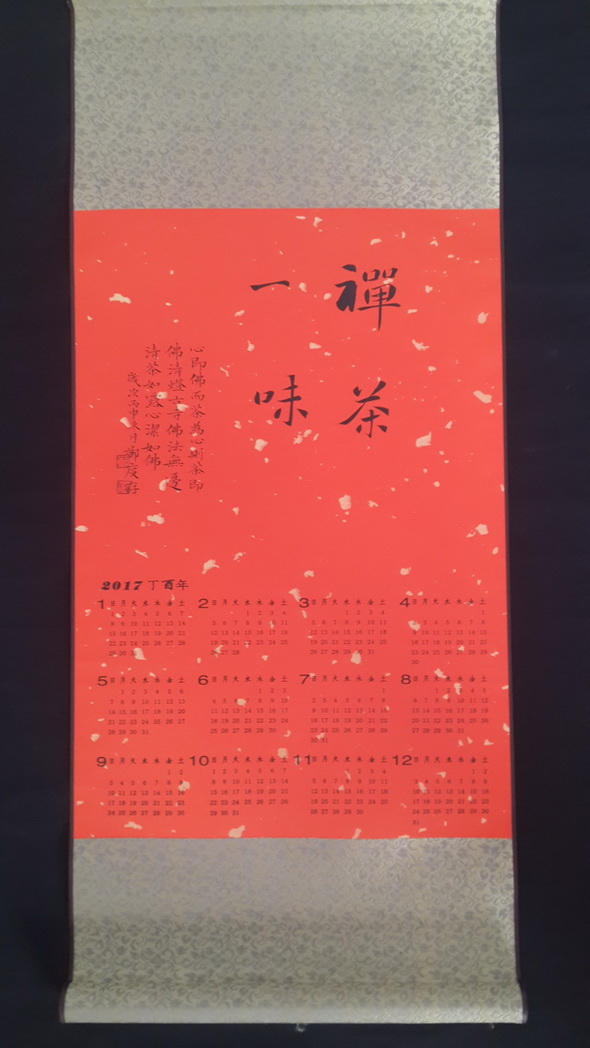 禪茶
一味
心即佛而茶為心則茶即
佛清燈古寺佛法無憂
清茶如 心潔如佛
歲次丙申 月鄭慶
2017 丁酉年
1
日 月 火 水 木 金 土
1 2 3 4 5 6 7
8 9 10 11 12 13 14
15 16 17 18 19 20 21
22 23 24 25 26 27 28
29 30 31
2
日 月 火 水 木 金 土
1 2 3 4
5 6 7 8 9 10 11
12 13 14 15 16 17 18
19 20 21 22 23 24 25
26 27 28
3
日 月 火 水 木 金 土
1 2 3 4
5 6 7 8 9 10 11
12 13 14 15 16 17 18
19 20 21 22 23 24 25
26 27 28 29 30 31
4
日 月 火 水 木 金 土
1
2 3 4 5 6 7 8
9 10 11 12 13 14 15
16 17 18 19 20 21 22
23 24 25 26 27 28 29
30
5
日 月 火 水 木 金 土
1 2 3 4 5 6
7 8 9 10 11 12 13
14 15 16 17 18 19 20
21 22 23 24 25 26 27
28 29 30 31
6
日 月 火 水 木 金 土
1 2 3
4 5 6 7 8 9 10
11 12 13 14 15 16 17
18 19 20 21 22 23 24
25 26 27 28 29 30
7
日 月 火 水 木 金 土
1
2 3 4 5 6 7 8
9 10 11 12 13 14 15
16 17 18 19 20 21 22
23 24 25 26 27 28 29
30 31
8
日 月 火 水 木 金 土
1 2 3 4 5
6 7 8 9 10 11 12
13 14 15 16 17 18 19
20 21 22 23 24 25 26
27 28 29 30 31
9
日 月 火 水 木 金 土
1 2
3 4 5 6 7 8 9
10 11 12 13 14 15 16
17 18 19 20 21 22 23
24 25 26 27 28 29 30
10
日 月 火 水 木 金 土
1 2 3 4 5 6 7
8 9 10 11 12 13 14
15 16 17 18 19 20 21
22 23 24 25 26 27 28
29 30 31
11
日 月 火 水 木 金 土
1 2 3 4
5 6 7 8 9 10 11
12 13 14 15 16 17 18
19 20 21 22 23 24 25
26 27 28 29 30
12
日 月 火 水 木 金 土
1 2
3 4 5 6 7 8 9
10 11 12 13 14 15 16
17 18 19 20 21 22 23
24 25 26 27 28 29 30
31